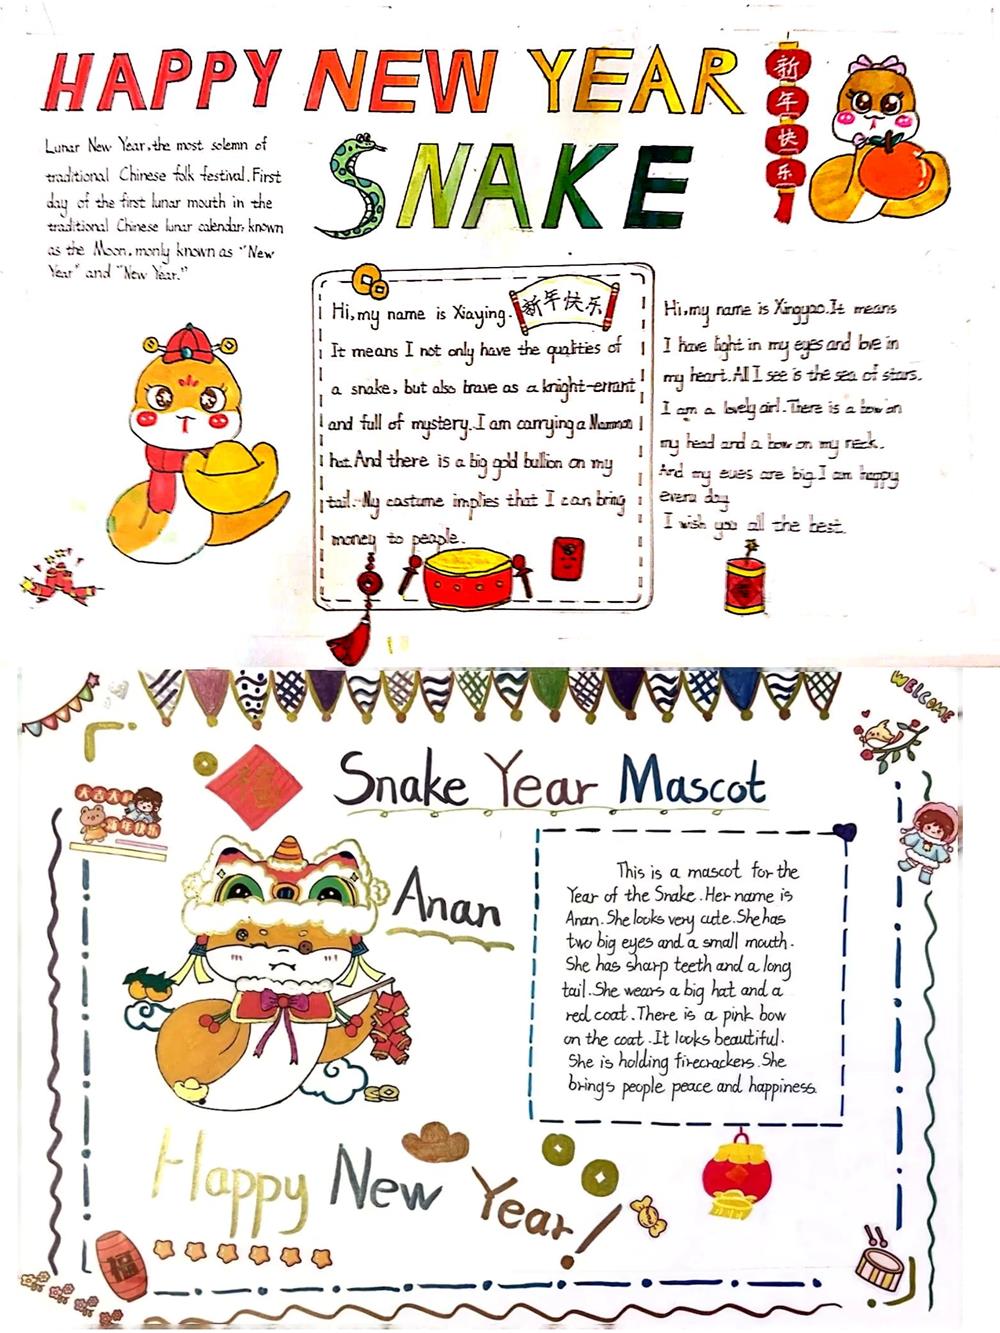 HAPPY NEW YEAR
SNAKE
新年快乐
Lunar New Year, the most solemn of
traditional Chinese folk festival. First
day of the first lunar mouth in the
traditional Chinese lunar calendar, known
as the Moon, monly known as "New
Year" and "New Year."
新年快乐
Hi, my name is Xiaying.
It means I not only have the qualities of
a snake, but also brave as a knight-errant
and full of mystery. I am carrying a Mammon
hat. And there is a big gold bullion on my
tail. My costume implies that I can bring
money to people.
Hi, my name is Xingyao. It means
I have light in my eyes and love in
my heart. All I see is the sea of stars.
I am a lovely girl. There is a bow on
my head and a bow on my neck.
And my eyes are big. I am happy
every day
I wish you all the best.
WELCOME
福
Snake Year Mascot
大吉大利
新年快乐
Anan
This is a mascot for the
Year of the Snake. Her name is
Anan. She looks very cute. She has
two big eyes and a small mouth.
She has sharp teeth and a long
tail. She wears a big hat and a
red coat. There is a pink bow
on the coat. It looks beautiful.
She is holding firecrackers. She
brings people peace and happiness.
Happy New Year!
福